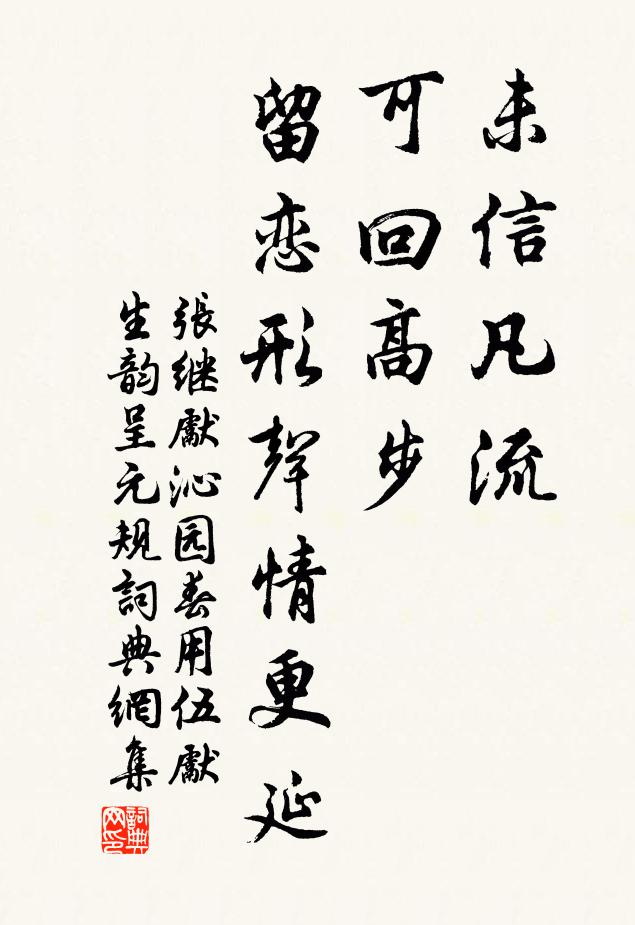 未信凡流
可回高步
留恋形聲情更延
張继獻沁园春用伍獻
生韵呈元规詞典網集
詞典网印